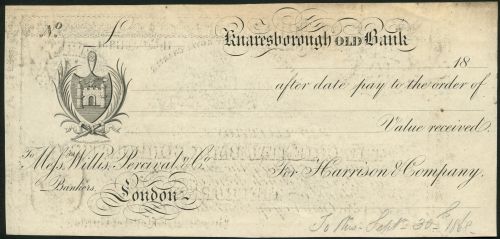 No
Knaresborough OLD Bank
18
after date pay to the order of
Value received.
To Messrs Willis, Percival & Co.
For Harrison & Company.
Bankers,
London